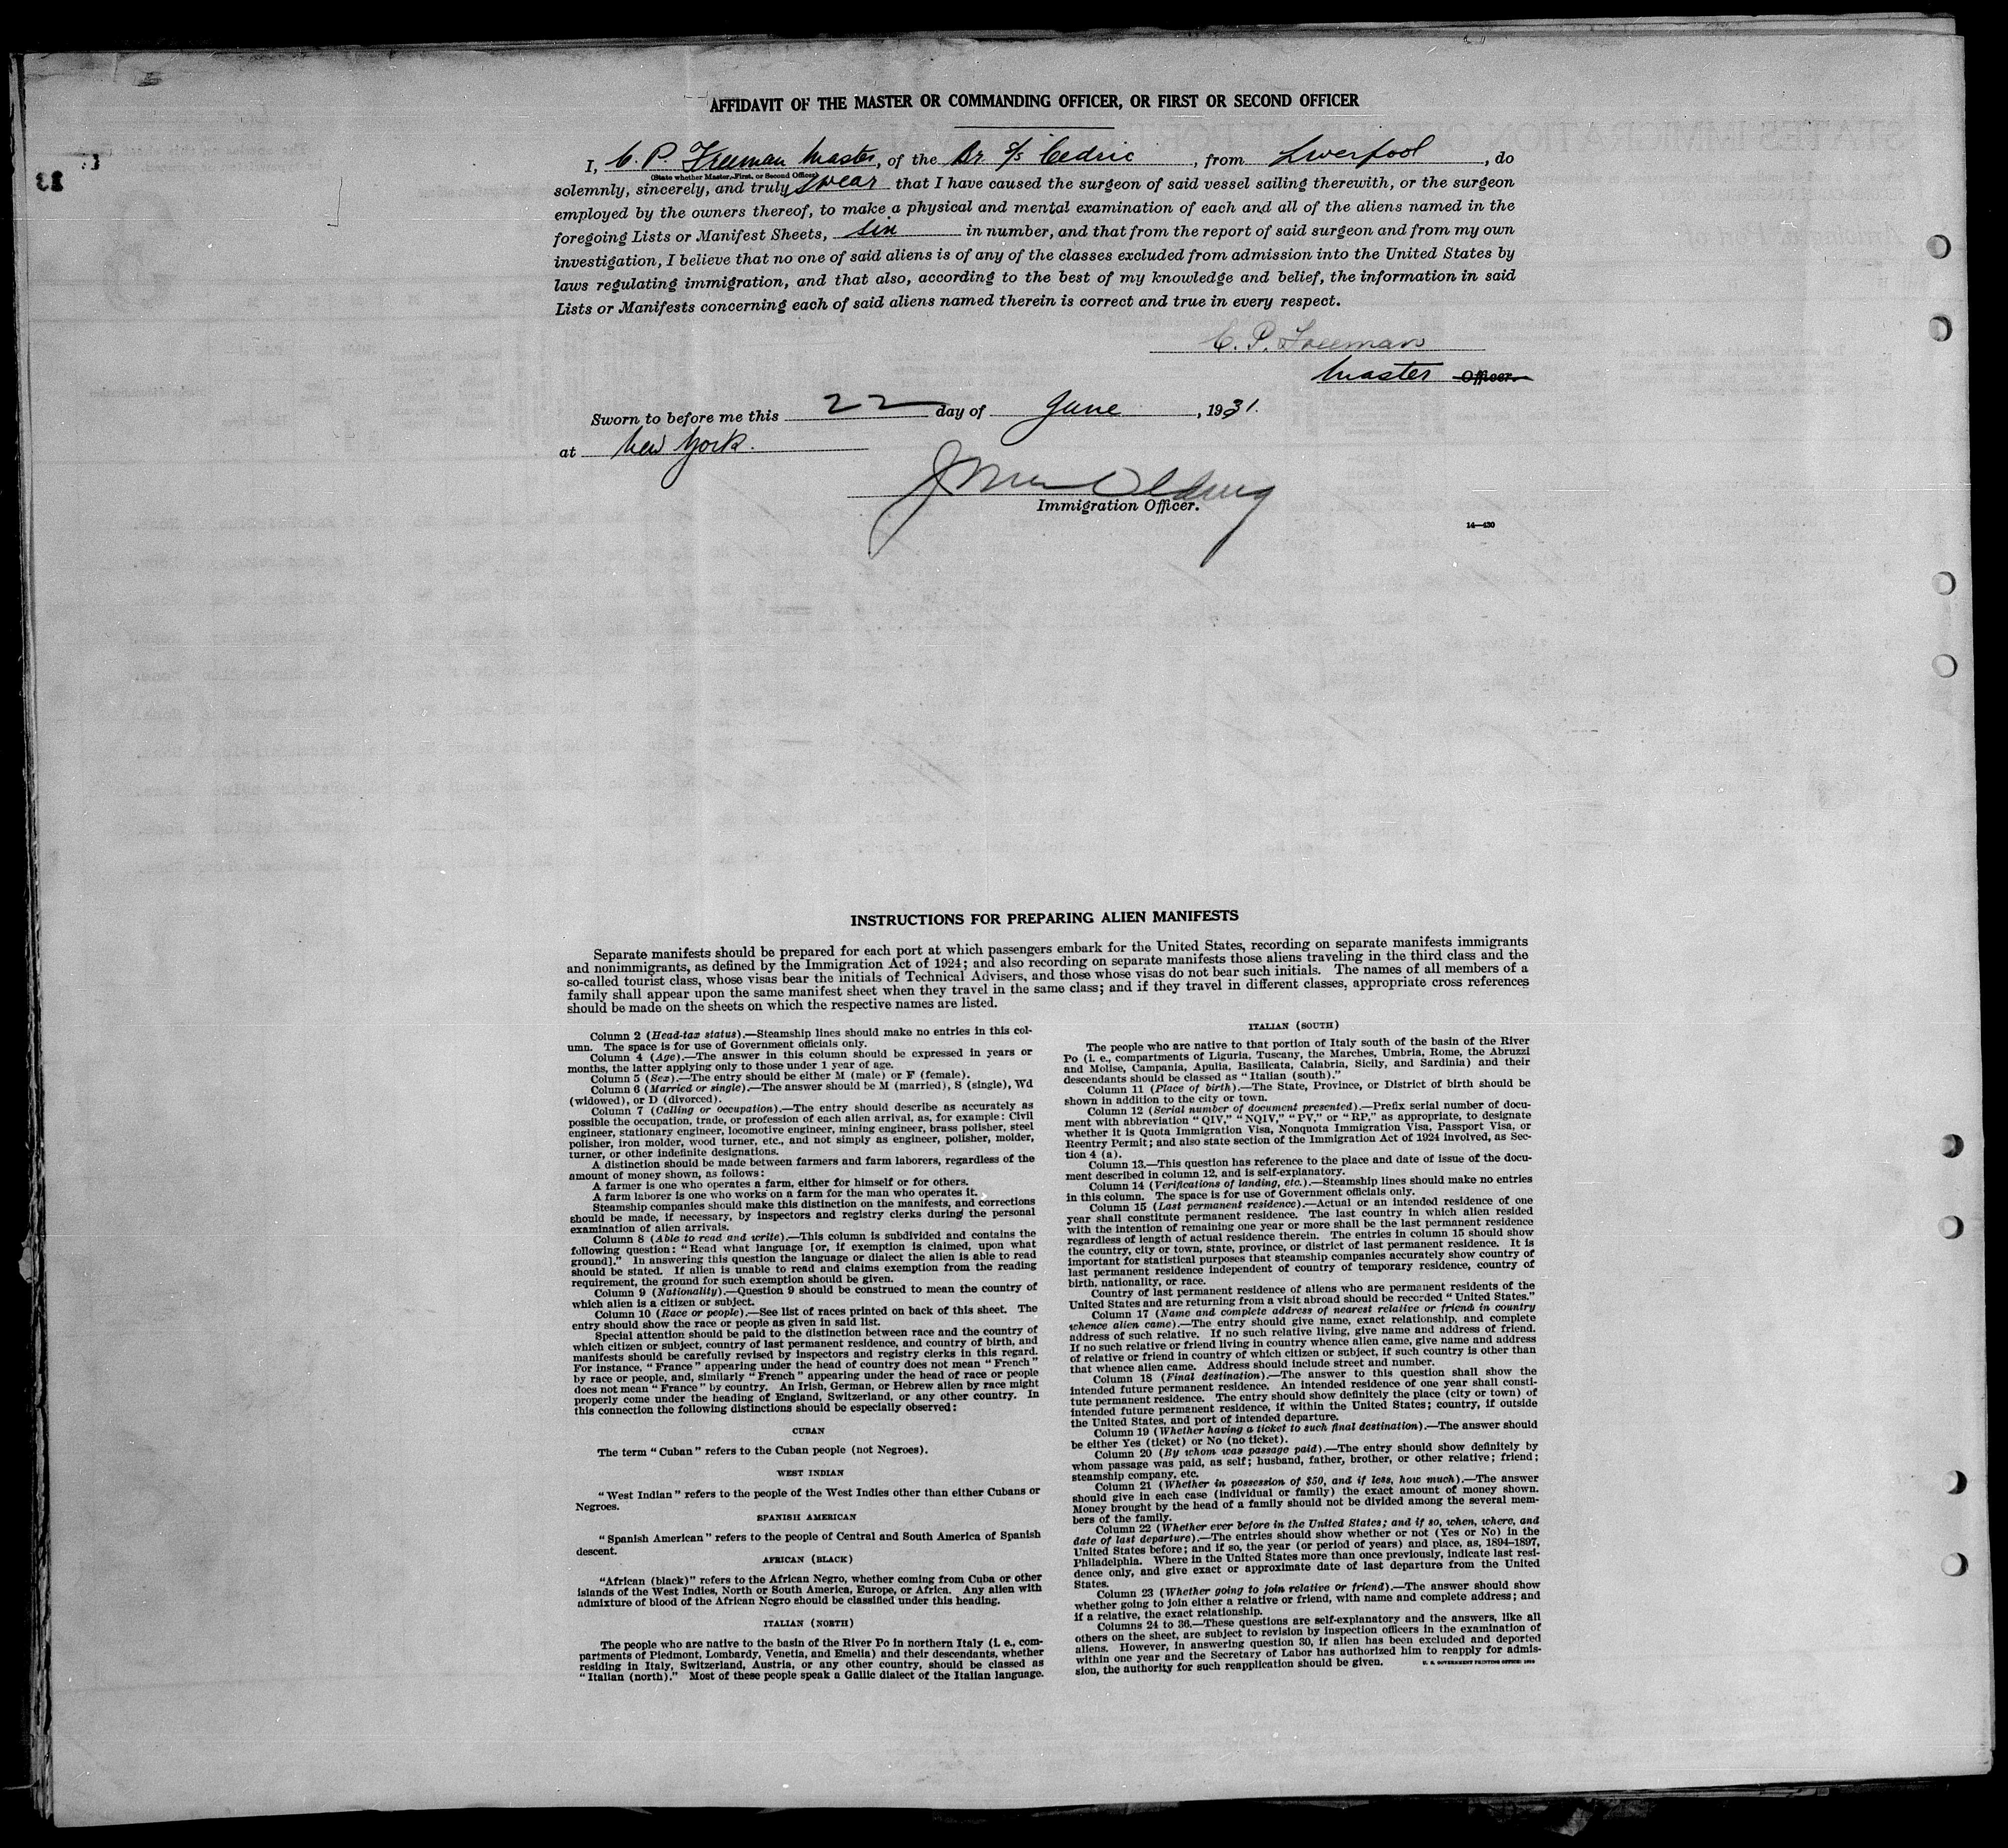 AFFIDAVIT OF THE MASTER OR COMMANDING OFFICER, OR FIRST OR SECOND OFFICER
I, C. P. Freeman Master, of the Br. s/s Cedric, from Liverpool, do
(State whether Master, First, or Second Officer)
solemnly, sincerely, and truly swear that I have caused the surgeon of said vessel sailing therewith, or the surgeon
employed by the owners thereof, to make a physical and mental examination of each and all of the aliens named in the
foregoing Lists or Manifest Sheets, six in number, and that from the report of said surgeon and from my own
investigation, I believe that no one of said aliens is of any of the classes excluded from admission into the United States by
laws regulating immigration, and that also, according to the best of my knowledge and belief, the information in said
Lists or Manifests concerning each of said aliens named therein is correct and true in every respect.
C. P. Freeman
Master Officer.
Sworn to before me this 22 day of June, 1931.
at New York.
Immigration Officer.
14—430
INSTRUCTIONS FOR PREPARING ALIEN MANIFESTS
Separate manifests should be prepared for each port at which passengers embark for the United States, recording on separate manifests immigrants
and nonimmigrants, as defined by the Immigration Act of 1924; and also recording on separate manifests those aliens traveling in the third class and the
so-called tourist class, whose visas bear the initials of Technical Advisers, and those whose visas do not bear such initials. The names of all members of a
family shall appear upon the same manifest sheet when they travel in the same class; and if they travel in different classes, appropriate cross references
should be made on the sheets on which the respective names are listed.
Column 2 (Head-tax status).—Steamship lines should make no entries in this col-
umn. The space is for use of Government officials only.
Column 4 (Age).—The answer in this column should be expressed in years or
months, the latter applying only to those under 1 year of age.
Column 5 (Sex).—The entry should be either M (male) or F (female).
Column 6 (Married or single).—The answer should be M (married), S (single), Wd
(widowed), or D (divorced).
Column 7 (Calling or occupation).—The entry should describe as accurately as
possible the occupation, trade, or profession of each alien arrival, as, for example: Civil
engineer, stationary engineer, locomotive engineer, mining engineer, brass polisher, steel
polisher, iron molder, wood turner, etc., and not simply as engineer, polisher, molder,
turner, or other indefinite designations.
A distinction should be made between farmers and farm laborers, regardless of the
amount of money shown, as follows:
A farmer is one who operates a farm, either for himself or for others.
A farm laborer is one who works on a farm for the man who operates it.
Steamship companies should make this distinction on the manifests, and corrections
should be made, if necessary, by inspectors and registry clerks during the personal
examination of alien arrivals.
Column 8 (Able to read and write).—This column is subdivided and contains the
following question: "Read what language [or, if exemption is claimed, upon what
ground]." In answering this question the language or dialect the alien is able to read
should be stated. If alien is unable to read and claims exemption from the reading
requirement, the ground for such exemption should be given.
Column 9 (Nationality).—Question 9 should be construed to mean the country of
which alien is a citizen or subject.
Column 10 (Race or people).—See list of races printed on back of this sheet. The
entry should show the race or people as given in said list.
Special attention should be paid to the distinction between race and the country of
which citizen or subject, country of last permanent residence, and country of birth, and
manifests should be carefully revised by inspectors and registry clerks in this regard.
For instance, "France" appearing under the head of country does not mean "French"
by race or people, and, similarly "French" appearing under the head of race or people
does not mean "France" by country. An Irish, German, or Hebrew alien by race might
properly come under the heading of England, Switzerland, or any other country. In
this connection the following distinctions should be especially observed:
CUBAN
The term "Cuban" refers to the Cuban people (not Negroes).
WEST INDIAN
"West Indian" refers to the people of the West Indies other than either Cubans or
Negroes.
SPANISH AMERICAN
"Spanish American" refers to the people of Central and South America of Spanish
descent.
AFRICAN (BLACK)
"African (black)" refers to the African Negro, whether coming from Cuba or other
islands of the West Indies, North or South America, Europe, or Africa. Any alien with
admixture of blood of the African Negro should be classified under this heading.
ITALIAN (NORTH)
The people who are native to the basin of the River Po in northern Italy (i. e., com-
partments of Piedmont, Lombardy, Venetia, and Emelia) and their descendants, whether
residing in Italy, Switzerland, Austria, or any other country, should be classed as
"Italian (north)." Most of these people speak a Gallic dialect of the Italian language.
ITALIAN (SOUTH)
The people who are native to that portion of Italy south of the basin of the River
Po (i. e., compartments of Liguria, Tuscany, the Marches, Umbria, Rome, the Abruzzi
and Molise, Campania, Apulia, Basilicata, Calabria, Sicily, and Sardinia) and their
descendants should be classed as "Italian (south)."
Column 11 (Place of birth).—The State, Province, or District of birth should be
shown in addition to the city or town.
Column 12 (Serial number of document presented).—Prefix serial number of docu-
ment with abbreviation "QIV," "NQIV," "PV," or "RP," as appropriate, to designate
whether it is Quota Immigration Visa, Nonquota Immigration Visa, Passport Visa, or
Reentry Permit; and also state section of the Immigration Act of 1924 involved, as Sec-
tion 4 (a).
Column 13.—This question has reference to the place and date of issue of the docu-
ment described in column 12, and is self-explanatory.
Column 14 (Verifications of landing, etc.).—Steamship lines should make no entries
in this column. The space is for use of Government officials only.
Column 15 (Last permanent residence).—Actual or an intended residence of one
year shall constitute permanent residence. The last country in which alien resided
with the intention of remaining one year or more shall be the last permanent residence
regardless of length of actual residence therein. The entries in column 15 should show
the country, city or town, state, province, or district of last permanent residence. It is
important for statistical purposes that steamship companies accurately show country of
last permanent residence independent of country of temporary residence, country of
birth, nationality, or race.
Country of last permanent residence of aliens who are permanent residents of the
United States and are returning from a visit abroad should be recorded "United States."
Column 17 (Name and complete address of nearest relative or friend in country
whence alien came).—The entry should give name, exact relationship, and complete
address of such relative. If no such relative living, give name and address of friend.
If no such relative or friend living in country whence alien came, give name and address
of relative or friend in country of which citizen or subject, if such country is other than
that whence alien came. Address should include street and number.
Column 18 (Final destination).—The answer to this question shall show the
intended future permanent residence. An intended residence of one year shall consti-
tute permanent residence. The entry should show definitely the place (city or town) of
intended future permanent residence, if within the United States; country, if outside
the United States, and port of intended departure.
Column 19 (Whether having a ticket to such final destination).—The answer should
be either Yes (ticket) or No (no ticket).
Column 20 (By whom was passage paid).—The entry should show definitely by
whom passage was paid, as self; husband, father, brother, or other relative; friend;
steamship company, etc.
Column 21 (Whether in possession of $50, and if less, how much).—The answer
should give in each case (individual or family) the exact amount of money shown.
Money brought by the head of a family should not be divided among the several mem-
bers of the family.
Column 22 (Whether ever before in the United States; and if so, when, where, and
date of last departure).—The entries should show whether or not (Yes or No) in the
United States before; and if so, the year (or period of years) and place, as, 1894–1897,
Philadelphia. Where in the United States more than once previously, indicate last resi-
dence only, and give exact or approximate date of last departure from the United
States.
Column 23 (Whether going to join relative or friend).—The answer should show
whether going to join either a relative or friend, with name and complete address; and
if a relative, the exact relationship.
Columns 24 to 36.—These questions are self-explanatory and the answers, like all
others on the sheet, are subject to revision by inspection officers in the examination of
aliens. However, in answering question 30, if alien has been excluded and deported
within one year and the Secretary of Labor has authorized him to reapply for admis-
sion, the authority for such reapplication should be given.
U. S. GOVERNMENT PRINTING OFFICE